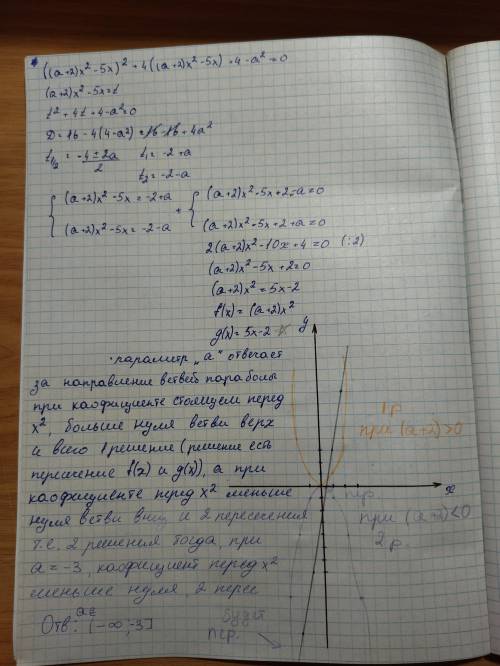 ((a+2)x²-5x)² + 4((a+2)x²-5x)+4-a²=0
(a+2)x²-5x=t
t²+4t+4-a²=0
D=16-4(4-a²)=16-16+4a²
t₁/₂ = (-4±2a)/2 t₁=-2+a
t₂=-2-a
{(a+2)x²-5x=-2+a + {(a+2)x²-5x+2-a=0
(a+2)x²-5x=-2-a (a+2)x²-5x+2+a=0
2(a+2)x²-10x+4=0 (:2)
(a+2)x²-5x+2=0
(a+2)x²=5x-2
f(x)=(a+2)x²
g(x)=5x-2
y
· параметр „a" отвечает
за направление ветвей параболы
при каофициенте стоящем перед
x², больше нуля ветви верх
и всего 1 решение (решение есть
пересечение f(x) и g(x)), а при
каофициенте перед x² меньше
нуля ветви вниз и 2 пересечения
т.е. 2 решения тогда, при
a=-3, каофициент перед x²
меньше нуля, 2 перес
Отв: a∈[-∞;-3]
1 р
при (a+2)>0
пер.
x
при (a+2)<0
2 р.
будет
пер.